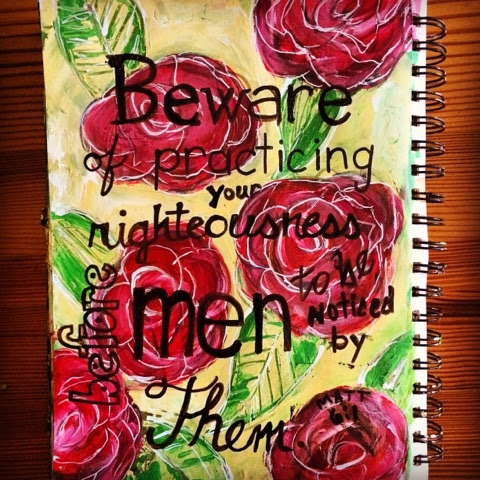 Beware
of practicing
your
righteousness
before
men
to be
NOTICED
by
Them.
MATT
6:1